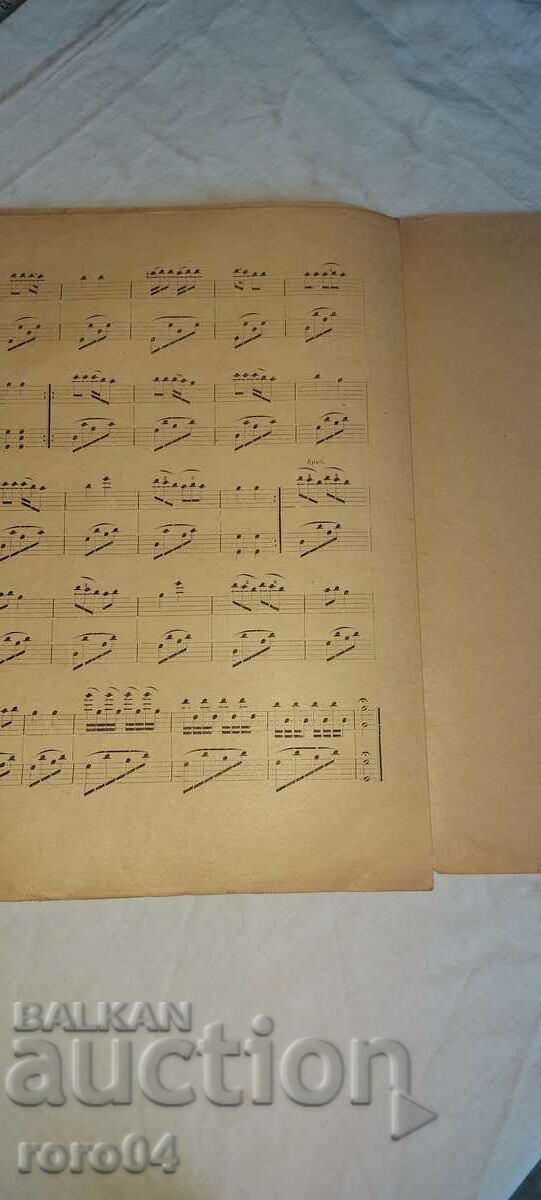 Край.
BALKAN
auction
roro04